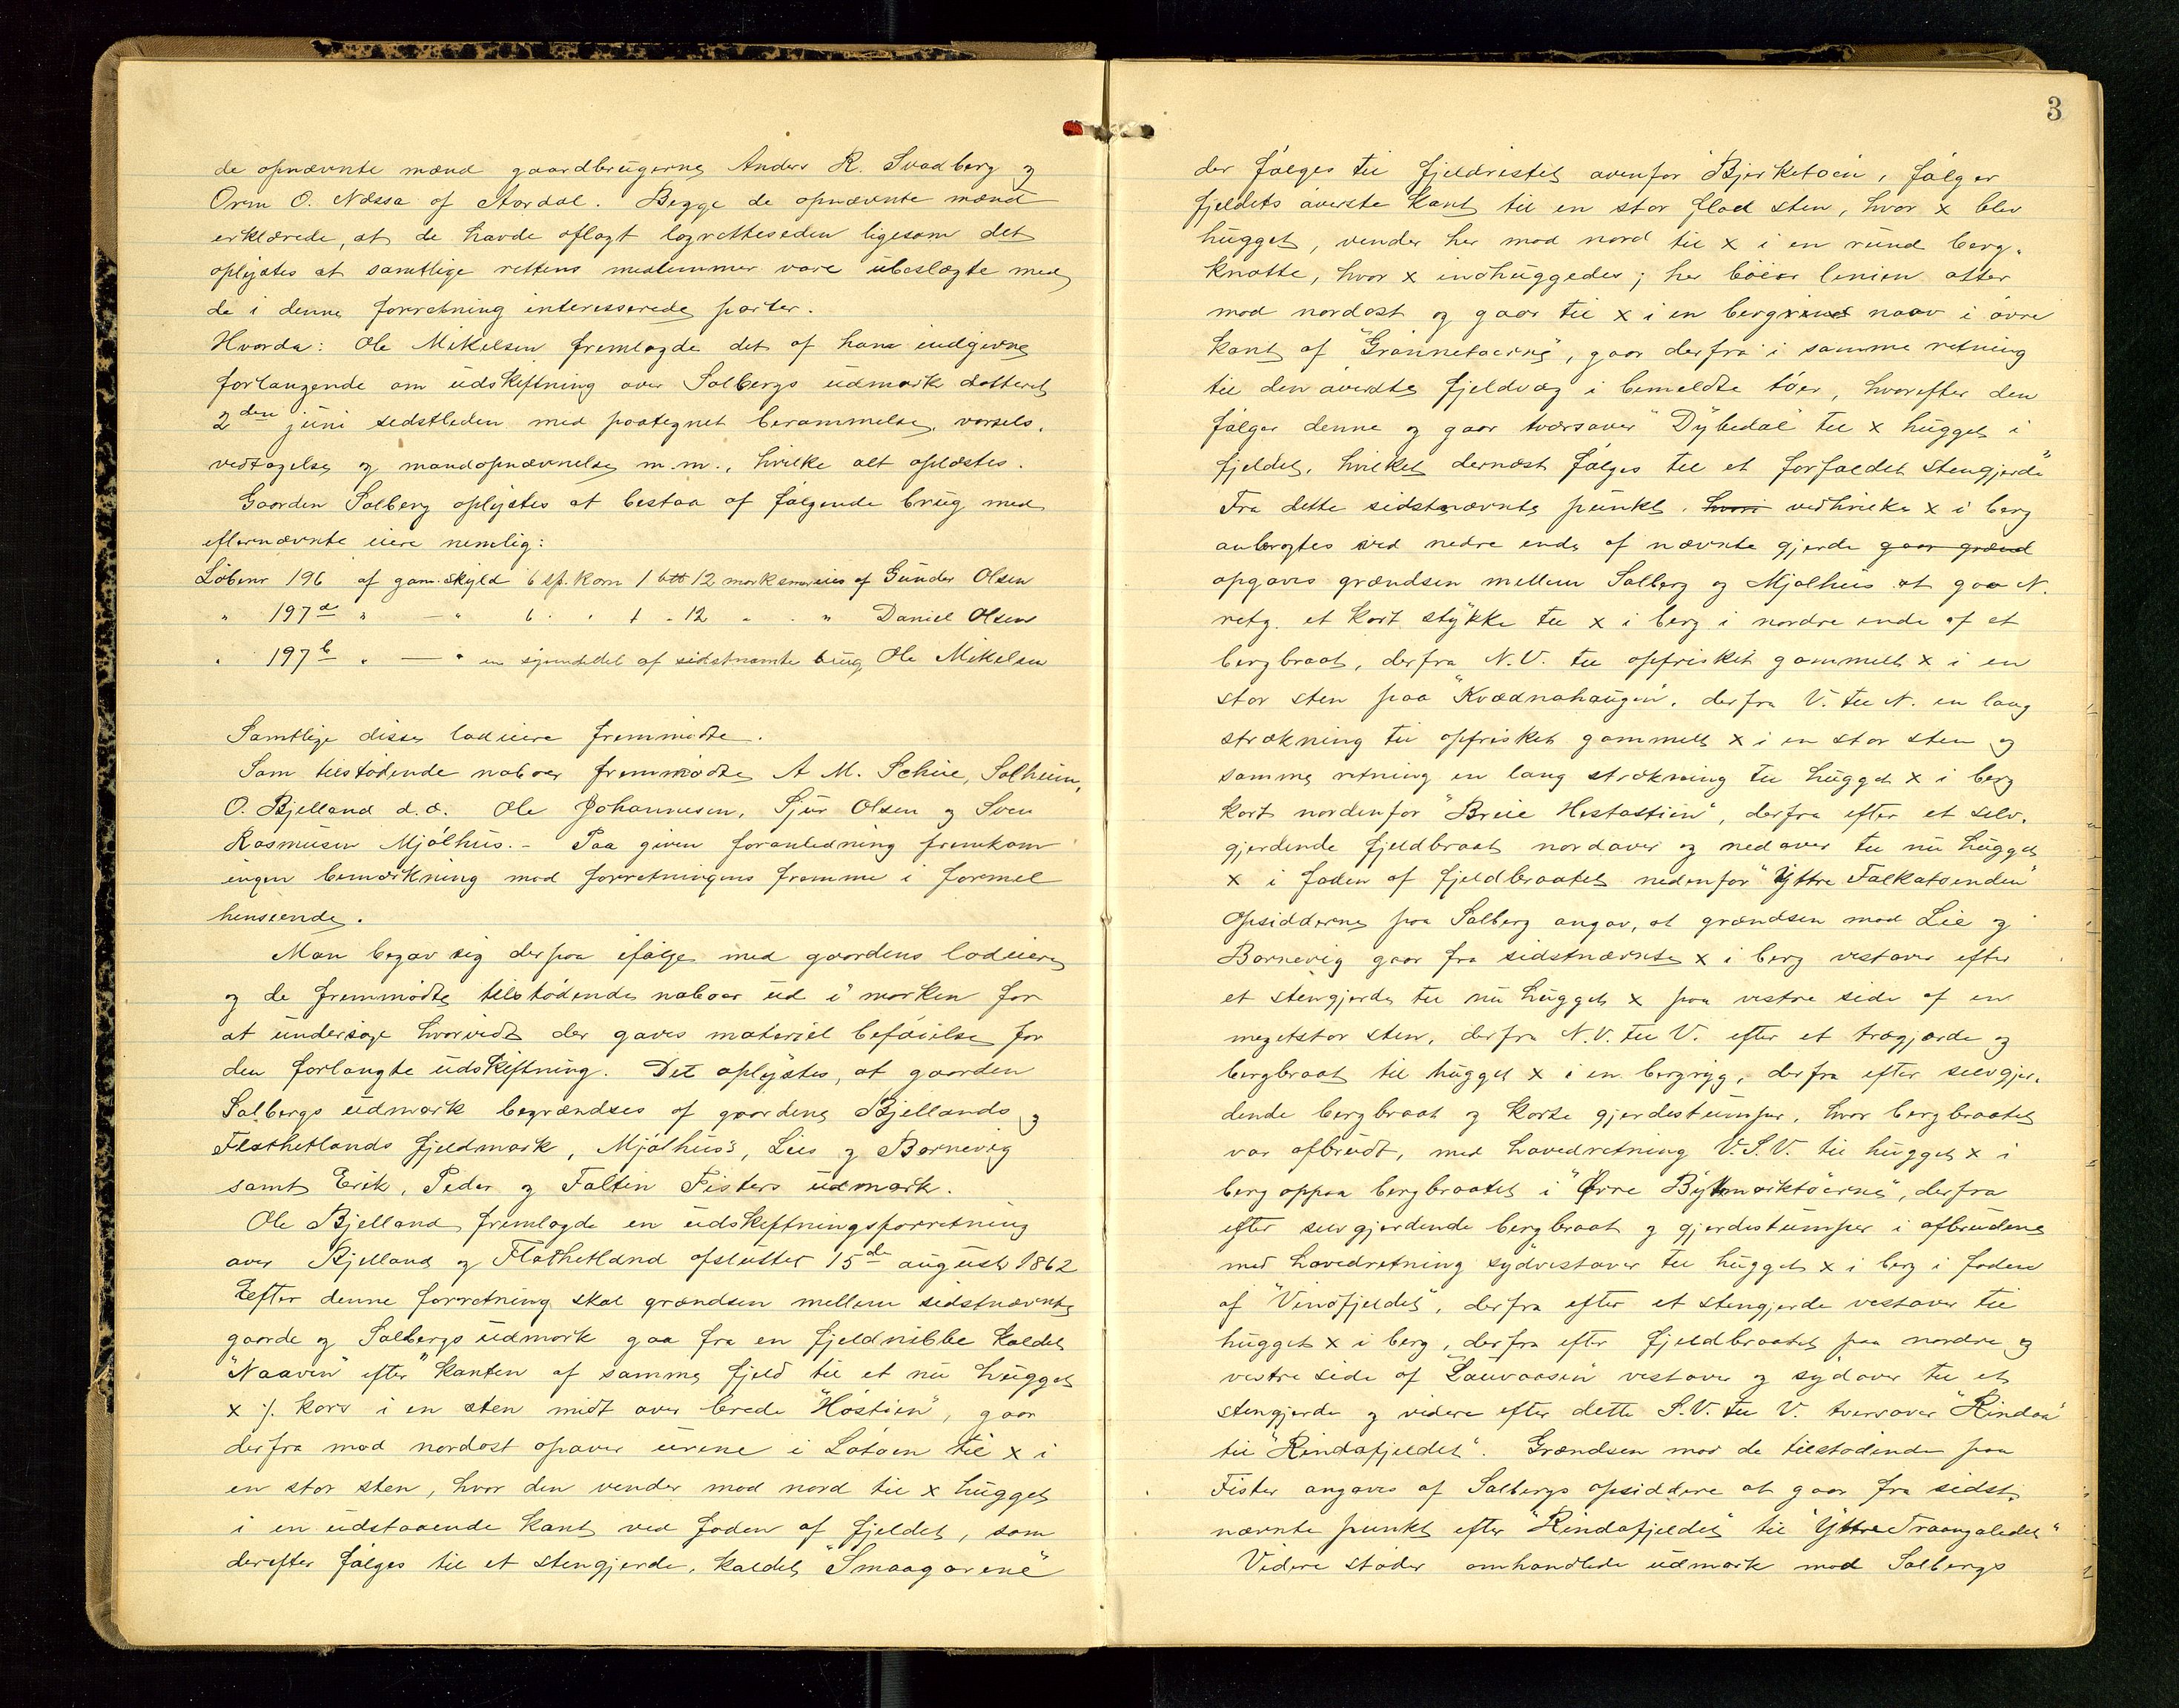 de opnævnte mænd gaardbrugerne Anders R. Svadberg og
Orm O. Næssa af Aardal. Begge de opnævnte mænd
erklærede, at de havde aflagt lagretteseden ligesom det
oplystes at samtlige rettens medlemmer vare ubeslægte med
de i denne forretning interesserede parter.
Hvorda: Ole Mikelsen fremlagde det af ham indgivne
forlangende om udskiftning over Solbergs udmark datteret
2den juni sidstleden med paategnet berammelse, varsels-
vedtagelse og mandopnævnelse m.m., hvilke alt oplæstes.
Gaarden Solberg oplystes at bestaa af følgende brug med
efternævnte eiere nemlig:
Löbenr 196 af gam. skyld 6 sp. korn 1 btt 12 mark smør eies af Gunder Olsen
" 197a " — " 6 " " 1 " 12 " " " Daniel Olsen
" 197b " — " en sjundedel af sidstnæmte brug Ole Mikelsen
Samtlige disse lodeiere fremmødte.
Som tilstødende naboer fremmødte A M. Schie, Solheim,
O. Bjelland d.æ. Ole Johannesen, Sjur Olsen og Sven
Rasmusen Mjølhus. - Paa given foranledning fremkom
ingen bemærkning mod forretningens fremme i formel
henseende.
Man begav sig derpaa ifølge med gaardens lodeiere
og de fremmødte tilstødende naboer ud i marken for
at undersøge hvorvidt der gaves materiel beføielse for
den forlangte udskiftning. Det oplystes, at gaarden
Solbergs udmark begrændses af gaardene Bjellands og
Flathetlands fjeldmark, Mjølhus's, Lies og Barnevig
samt Erik, Peder og Faltin Fisters udmark.
Ole Bjelland fremlagde en udskiftningsforretning
over Bjelland og Flathetland afsluttet 15de august 1862
Efter denne forretning skal grændsen mellem sidstnævnte
gaarde og Solbergs udmark gaa fra en fjeldnibbe kaldet
"Naaven" efter kanten af samme fjeld til et nu hugget
x ɔ: kors i en sten midt over brede "Høstien", gaar
derfra mod nordost opover urene i Løtoen til x i
en stor sten, hvor den vender mod nord til x hugget
i en udstaaende kant ved foden af fjeldet, som
derefter følges til et stengjerde, kaldet "Smaagarene"
3
der følges til fjeldristet ovenfor "Bjerketoen", følger
fjeldets øverste kant til en stor flad sten, hvor x blev
hugget, vender her mod nord til x i en rund berg-
knatte, hvor x indhuggedes; her bøier linien atter
mod nordost og gaar til x i en berg naav i øvre
kant af "Grønnetoerne", gaar derfra i samme retning
til den øverste fjeldvæg i bemeldte tøer, hvorefter den
følger denne og gaar tværsover "Dybedal" til x hugget i
fjeldet, hvilket dernæst følges til et forfaldet stengjerde
Fra dette sidstnævnte punkt, hvori ved hvilke x i berg
anbragtes ved nedre ende af nævnte gjerde gaar grænd
opgaves grændsen mellem Solberg og Mjølhus at gaa N.
retg. et kort stykke til x i berg i nordre ende af et
bergbraat, derfra N.V. til opfrisket gammelt x i en
stor sten paa "Kvædnahaugen", derfra V. til N. en lang
strækning til opfrisket gammelt x i en stor sten og
samme retning en lang strækning til hugget x i berg
kort nordenfor "Breie Hestastien", derfra efter et selv-
gjerdende fjeldbraat nordover og nedover til nu hugget
x i foden af fjeldbraatet nedenfor "Yttre Falkatoenden"
Opsidderne paa Solberg angav, at grændsen mod Lie og
Barnevig gaar fra sidstnævnte x i berg vestover efter
et stengjerde til nu hugget x paa vestre side af en
megetstor sten, derfra N.V. til V. efter et trægjærde og
bergbraat til hugget x i en bergryg, derfra efter selvgjer-
dende bergbraat og korte gjerdestumper, hvor bergbraatet
var afbrudt, med hovedretning V.S.V. til hugget x i
berg oppaa bergbraatet i "Øvre Bykmarktøerne", derfra
efter selvgjerdende bergbraat og gjerdestumper i afbrudene
med hovedretning sydvestover til hugget x i berg i foden
af "Vindfjeldet", derfra efter et stengjerde vestover til
hugget x i berg, derfra efter fjeldbraatet paa nordre og
vestre side af "Lauvaasen" vestover og sydover til et
stengjerde og videre efter dette S.V. til V. tversover "Rindaa"
til "Rindafjeldet". Grændsen mod de tilstødende paa
Fister angaves af Solbergs opsiddere at gaar fra sidst-
nævnte punkt efter "Rindafjeldet" til "Yttre Traangaledet"
Videre støder omhandlede udmark mod Solbergs